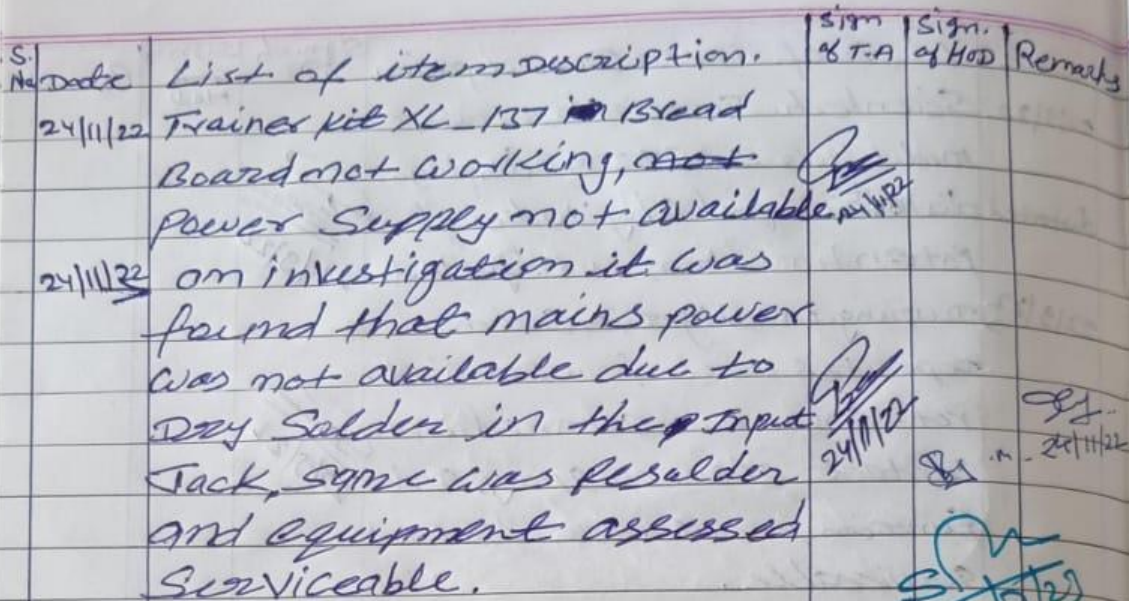 S. No Date List of item Description. Sign of T.A Sign. of HOD Remarks
24/11/22 Trainer kit XL-137 in Bread
Board not working, not
power Supply not available 24/11/22
24/11/22 on investigation it was
found that mains power
was not available due to
Dry Solder in the Input
Jack, same was Resolder 24/11/22 24/11/22
and equipment assessed
Serviceable.